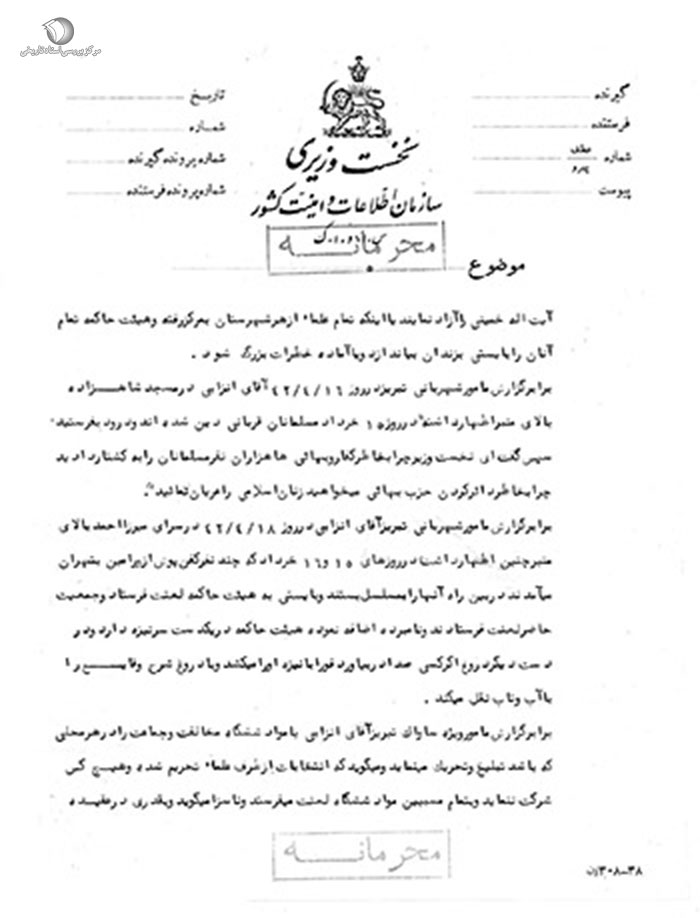 مرکز بررسی اسناد تاریخی
گیرنده
فرستنده
شماره عطف پیرو
پیوست
تاریخ
شماره
شماره پرونده گیرنده
شماره پرونده فرستنده
نخست وزیری
سازمان اطلاعات و امنیت کشور
س.ا.و.ا.ک
محرمانه
موضوع
آیت اله خمینی را آزاد نمایند یا اینکه تمام علماء از هر شهرستان بمرکز رفته و هیئت حاکمه تمام
آنان را بایستی بزندان بیاندازد و یا آماده خطرات بزرگ شود .
برابر گزارش مامور شهربانی تبریز در روز ۴۲/۴/۱۶ آقای انزابی در مسجد شاهزاده
بالای منبر اظهار داشته در روز ۱۵ خرداد مسلمانان قربانی دین شده اند و درود بفرستید
سپس گفت ای نخست وزیر چرا بخاطر کفار و بهائی ها هزاران نفر مسلمانان را به کشتار دادید
چرا بخاطر دائر کردن حزب بهائی میخواهید زنان اسلامی را عریان نمائید .
برابر گزارش مامور شهربانی تبریز آقای انزابی در روز ۴۲/۴/۱۸ در سرای میرزا احمد بالای
منبر چنین اظهار داشته در روزهای ۱۵ و ۱۶ خرداد که چند نفر کفن پوش از ورامین بتهران
میآمدند در بین راه آنها را بمسلسل بستند و بایستی به هیئت حاکمه لعنت فرستاد و جمعیت
حاضر لعنت فرستادند و نامبرده اضافه نموده هیئت حاکمه در یکدست سرنیزه دارد و در
دست دیگر دروغ اگر کسی صدا در بیاورد فورا با نیزه اورا میکشد و با دروغ شرح وقایع را
با آب و تاب نقل میکند .
برابر گزارش مامور ویژه ساواک تبریز آقای انزابی با مواد ششگانه مخالفت و جماعت را در هر محلی
که باشد تبلیغ و تحریک مینماید و میگوید که انتخابات از طرف علماء تحریم شده و هیچ کس
شرکت ننماید و بتمام مسببین مواد ششگانه لعنت میفرستد و ناسزا میگوید و بقدری در عقیده
محرمانه